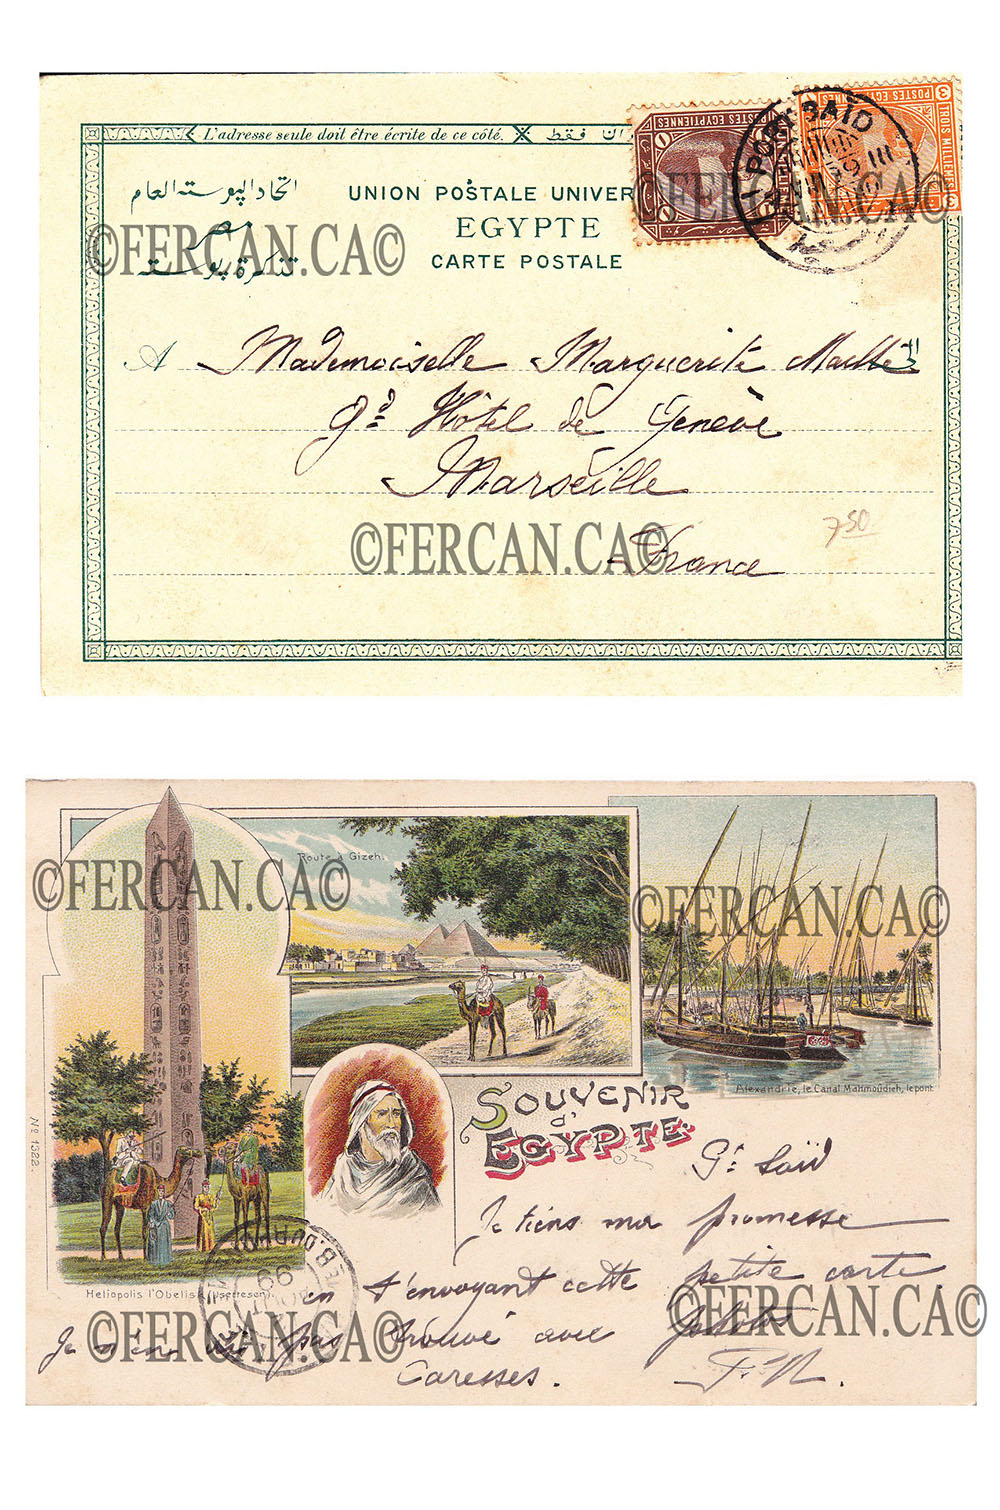 L'adresse seule doit être écrite de ce côté.
فقط
اتحاد البوسته العام
UNION POSTALE UNIVER
مصر
EGYPTE
تذكرة بوسته
CARTE POSTALE
POSTES EGYPTIENNES
TROIS MILLIEMES
PORT SAID
©FERCAN.CA©
©FERCAN.CA©
A Mademoiselle Marguerite
Gd Hôtel de Genève
Marseille
750
©FERCAN.CA©
France
Route à Gizeh.
©FERCAN.CA©
©FERCAN.CA©
Alexandrie, le Canal Mahmoudieh, le pont
SOUVENIR
d'
EGYPTE.
No 1322.
Pt Saïd
Je tiens ma promesse
Heliopolis l'Obelisk (Usertesen).
en t'envoyant cette petite carte.
©FERCAN.CA©
©FERCAN.CA©
Je n'en ai pas trouvé avec
Caresses.